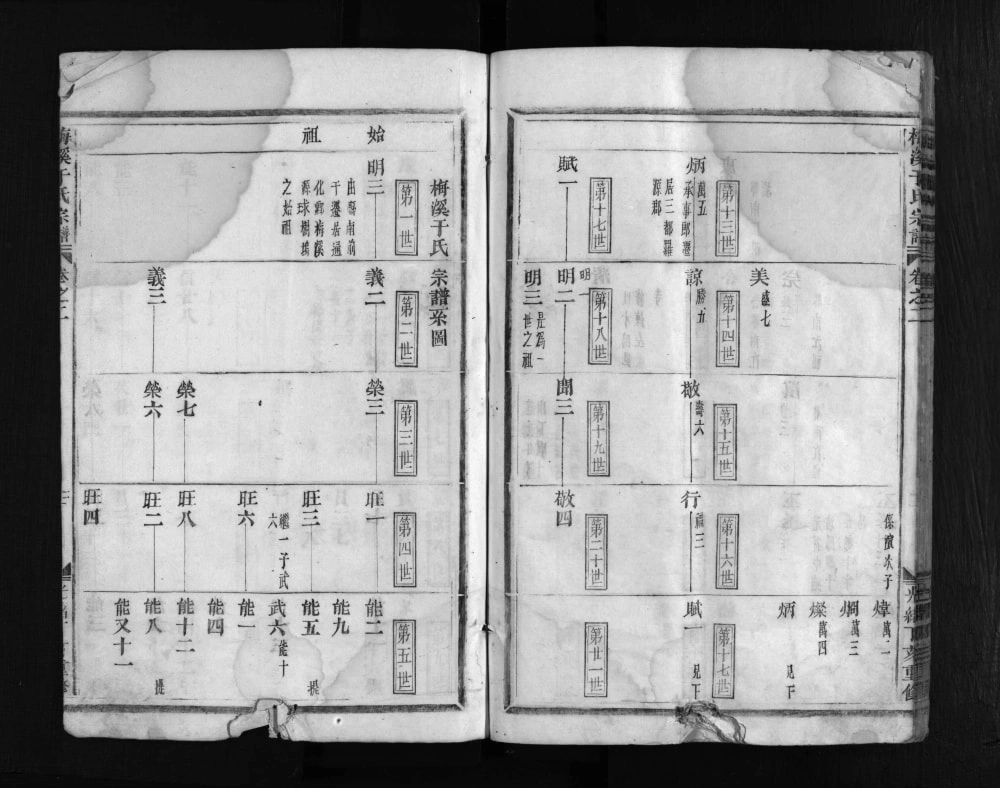 梅溪于氏宗譜
卷之二
保嬪次子
煒萬二
烔萬三
燦萬四
炳 見下
第十三世
炳萬五
承事郎遷
居三都羅
源郡
第十四世
美盛七
諒勝九
第十五世
敬壽六
第十六世
行福三
第十七世
賦一 見下
第十七世
賦一
第十八世
明一
明二
明三
是爲一
世之祖
第十九世
聞三
第二十世
敬四
第廿一世
梅溪于氏
宗譜系圖
始祖
第一世
明三
之始祖
第二世
義二
義三
第三世
榮三
榮七
榮六
第四世
旺一
旺三
繼一子武
六
旺六
旺八
旺二
旺四
第五世
能二
能九
能五
武六能十
能一
能四
能十二
能八
能又十一
梅溪于氏宗譜
卷之二